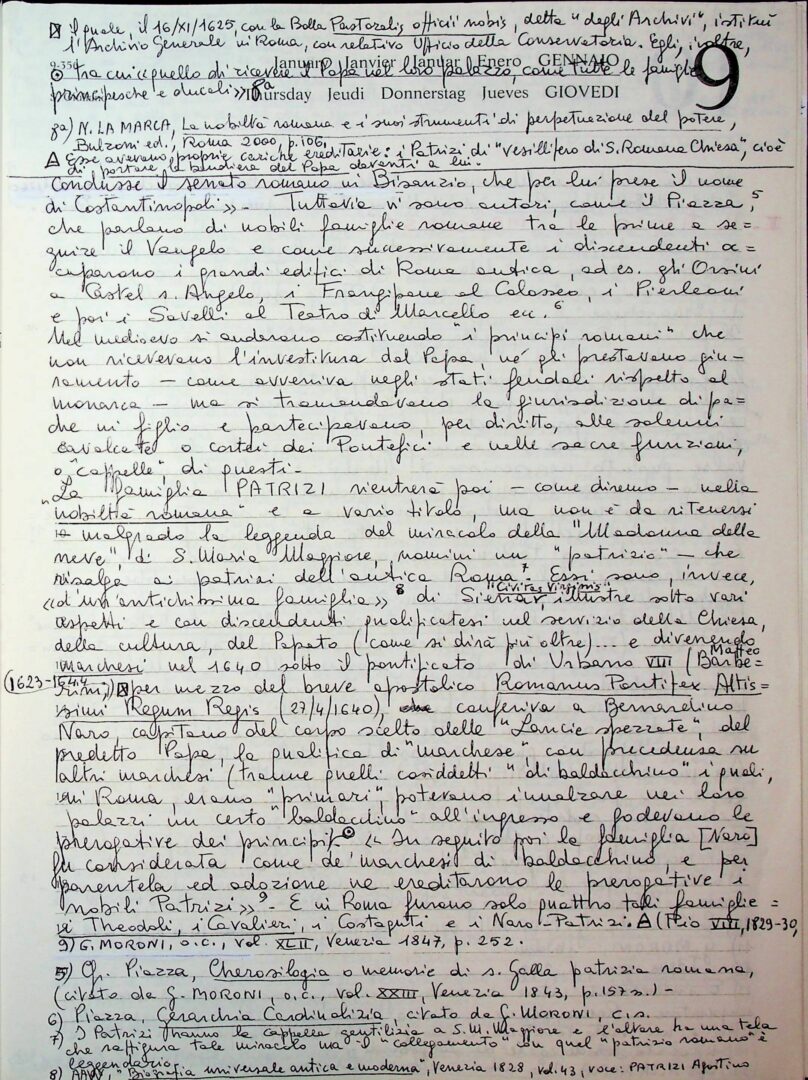 ⊠ il quale, il 16/XI/1625, con la Bolla Pastoralis officii nobis, detta "degli Archivi", istituì
l'Archivio Generale in Roma, con relativo Ufficio della Conservatoria. Egli, inoltre,
9-356 January Janvier Januar Enero GENNAIO 9
⊙ tra cui quello di ricevere il Papa nel loro palazzo, come tutte le famiglie
Thursday Jeudi Donnerstag Jueves GIOVEDI
principesche e ducali». 8a
8a) N. LA MARCA, La nobiltà romana e i suoi strumenti di perpetuazione del potere,
Bulzoni ed., Roma 2000, p. 106.
∆ Esse avevano proprie cariche ereditarie: i Patrizi di "vesillifero di S. Romana Chiesa", cioè
di portare la bandiera del Papa davanti a lui.
condusse il senato romano in Bisanzio, che per lui prese il nome
di Costantinopoli». Tuttavia vi sono autori, come il Piazza, 5
che parlano di nobili famiglie romane tra le prime a se=
guire il Vangelo e come successivamente i discendenti oc=
cuparono i grandi edifici di Roma antica, ad es. gli Orsini
a Castel s. Angelo, i Frangipane al Colosseo, i Pierleoni
e poi i Savelli al Teatro di Marcello ecc. 6
Nel medioevo si andarono costituendo "i principi romani" che
non ricevevano l'investitura dal Papa, né gli prestavano giu-
ramento – come avveniva negli stati feudali rispetto al
monarca – ma si tramandavano la giurisdizione di pa=
dre in figlio e partecipavano, per diritto, alle solenni
cavalcate o cortei dei Pontefici e nelle sacre funzioni,
o "cappelle", di questi.
La famiglia PATRIZI rientrerà poi – come diremo – nella
"nobiltà romana" e a vario titolo, ma non è da ritenersi
– malgrado la leggenda del miracolo della "Madonna della
neve", di S. Maria Maggiore, nomini un "patrizio" – che
risalga ai patrizi dell'antica Roma 7. Essi sono, invece,
«d'un'antichissima famiglia» 8 di Siena, "Civitas Virginis", illustre sotto vari
aspetti e con discendenti qualificatesi nel servizio della Chiesa,
della cultura, del Papato (come si dirà più oltre)... e divenendo
marchesi nel 1640 sotto il pontificato di Urbano VIII (Matteo Barbe=
(1623-1644) rini) ⊠ per mezzo del breve apostolico Romanus Pontifex Altis=
simi Regum Regis (27/4/1640), conferiva a Bernardino
Naro, capitano del corpo scelto delle "Lancie spezzate", del
predetto Papa, la qualifica di "marchese", con precedenza su
altri marchesi (tranne quelli cosiddetti "di baldacchino" i quali,
in Roma, erano "primari", potevano innalzare nei loro
palazzi un certo "baldacchino" all'ingresso e godevano le
prerogative dei principi) ⊙ «In seguito poi la famiglia [Naro]
fu considerata come de' marchesi di baldacchino, e per
parentela ed adozione ne ereditarono le prerogative i
nobili Patrizi» 9. E in Roma furono solo quattro tali famiglie =
i Theodoli, i Cavalieri, i Costaguti e i Naro-Patrizi. ∆ (Pio VIII, 1829-30,
9) G. MORONI, o.c., vol. XLII, Venezia 1847, p. 252.
5) Cfr. Piazza, Cherosilogia o memorie di s. Galla patrizia romana,
(citato da G. MORONI, o.c., vol. XXIII, Venezia 1843, p. 157 s.) –
6) Piazza, Gerarchia Cardinalizia, citato da G. MORONI, c.s.
7) I Patrizi hanno la cappella gentilizia a S. M. Maggiore e l'altare ha una tela
che raffigura tale miracolo ma il "collegamento" con quel "patrizio romano" è
leggendario.
8) AAVV, "Biografia universale antica e moderna", Venezia 1828, vol. 43, voce: PATRIZI Agostino